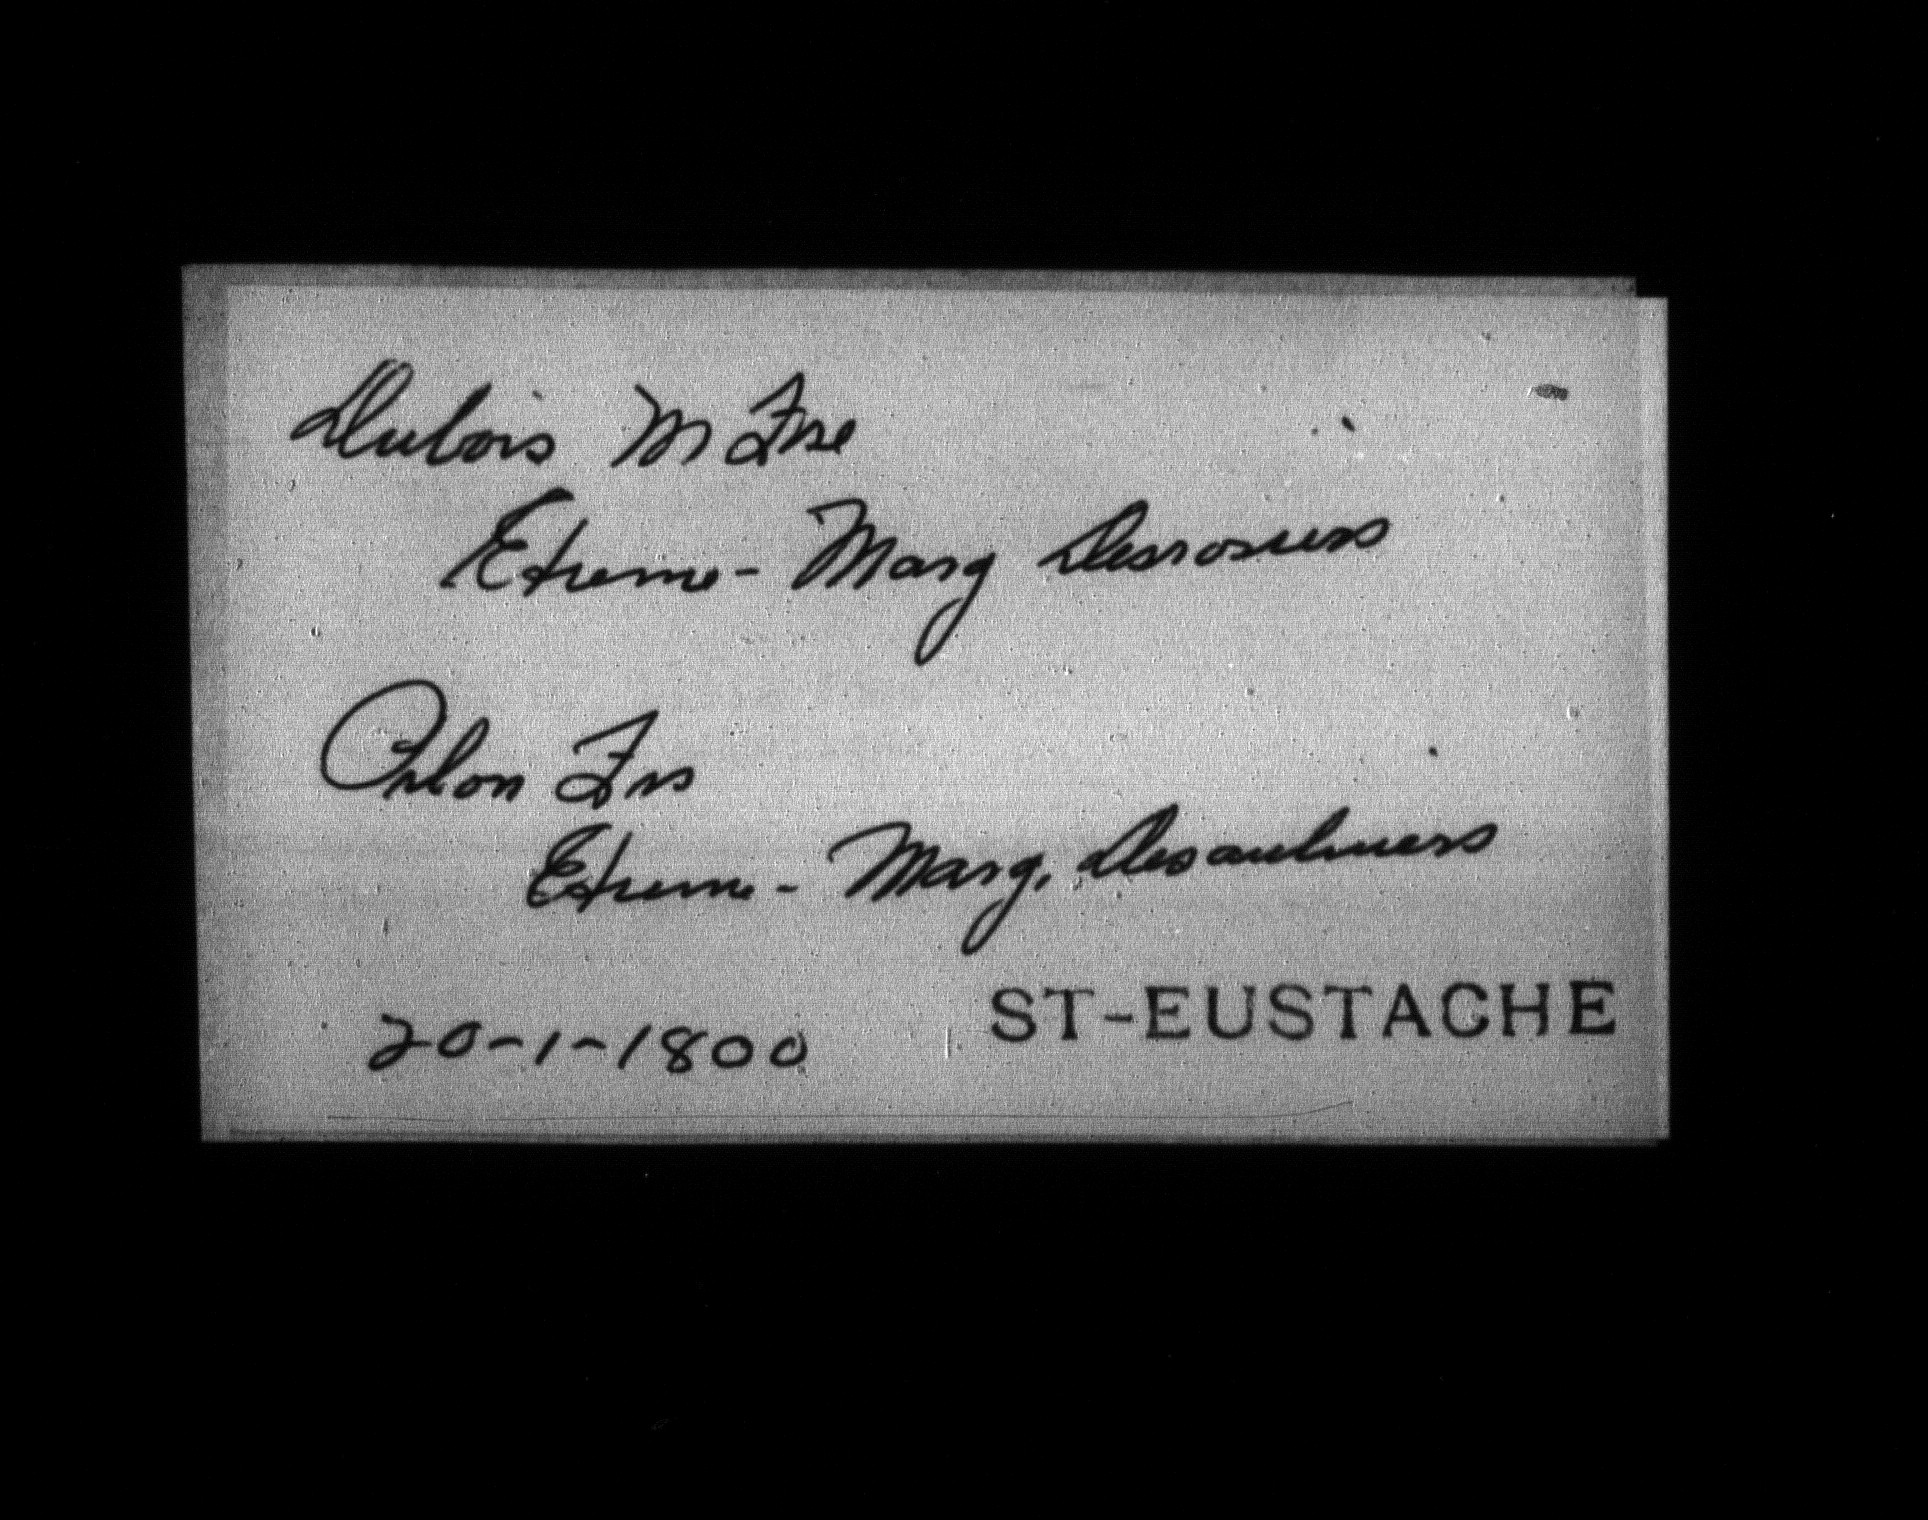 Dubois M Frse
Etienne - Marg Desrosiers
Orlon Frs
Etienne - Marg. Desaulniers
20-1-1800
ST-EUSTACHE